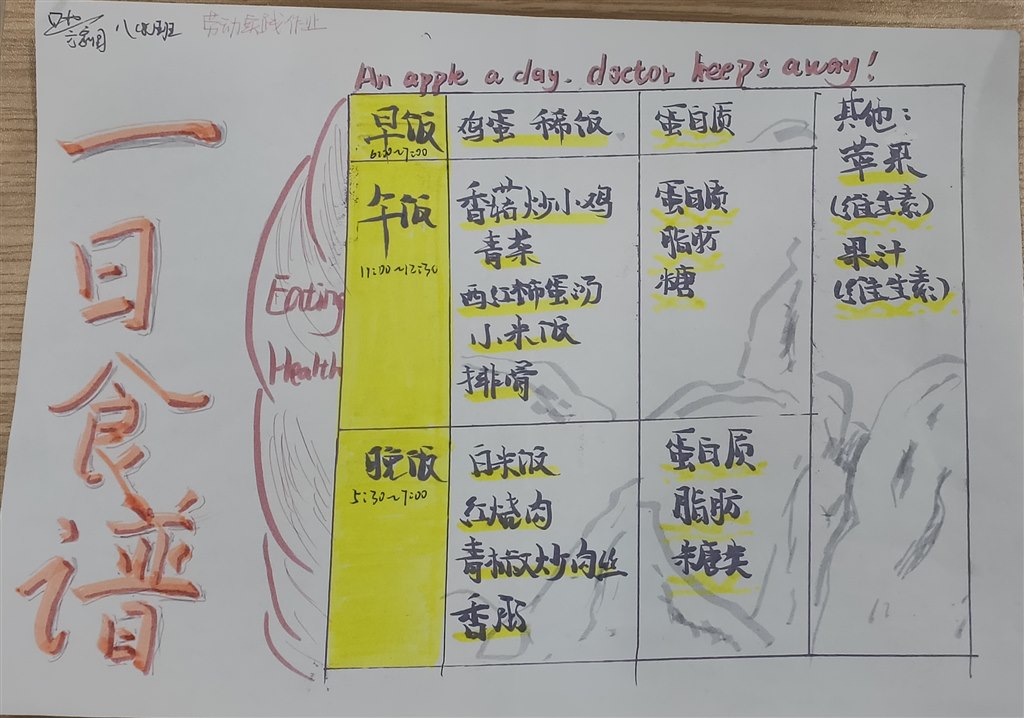 劳动实践作业
An apple a day. doctor keeps away!
一日食谱
Eating
Health
早饭
6:00~7:00
鸡蛋 稀饭
蛋白质
午饭
11:00~12:30
香菇炒小鸡
青菜
西红柿蛋汤
小米饭
排骨
蛋白质
脂肪
糖
晚饭
5:30~7:00
白米饭
红烧肉
青椒炒肉丝
香肠
蛋白质
脂肪
糖类
其他:
苹果
(维生素)
果汁
(维生素)